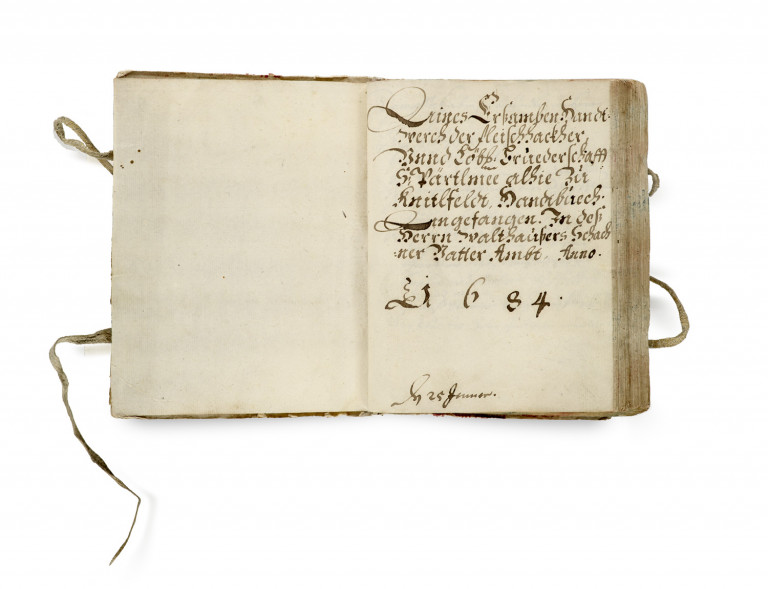 Eines Ersamben Handt
werch der fleischhackher,
Unnd Löbl: Bruederschafft
S: Pärtlmee alhie Zu
Knitlfeldt, Handtbuech.
Angefangen. In deß
Herrn Walthaußers Schach
ner Vatter Ambt. Anno.
1 6 8 4.
25 Jenner.